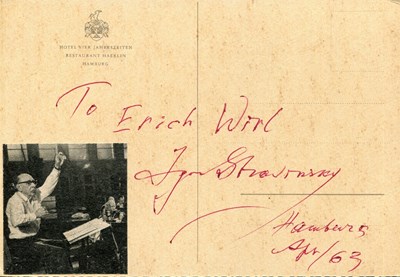 HOTEL VIER JAHRESZEITEN
RESTAURANT HAERLIN
HAMBURG
To Erich Wirl
Igor Stravinsky
Hamburg
Apr/63